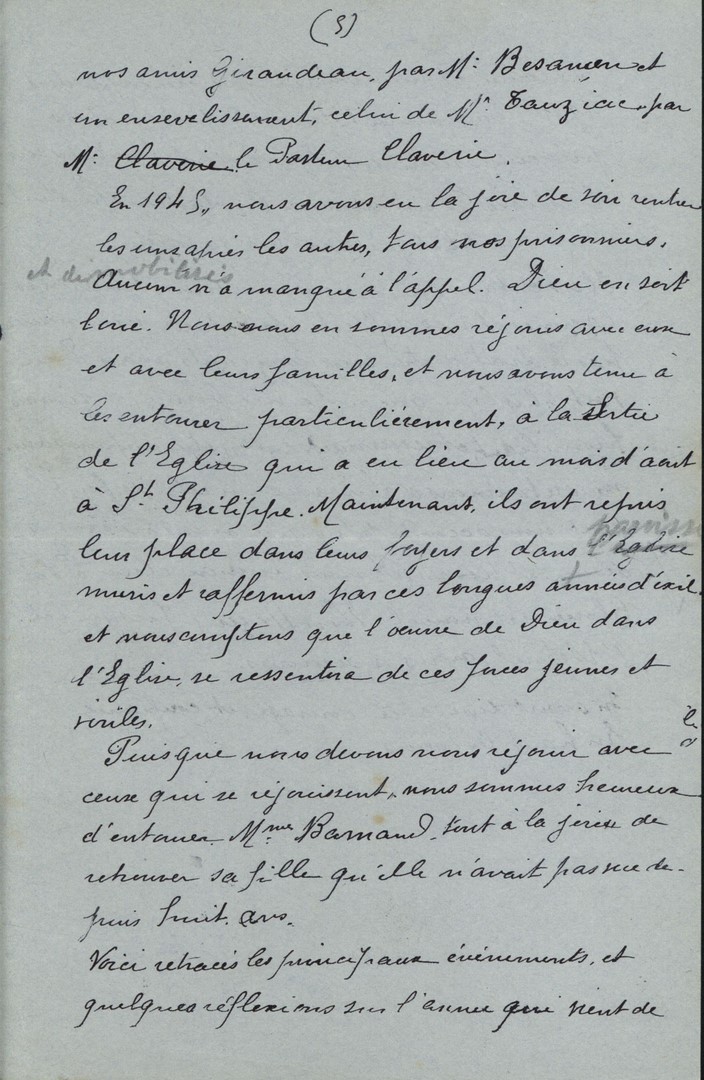 (5)
nos amis Girandeau, par Mr. Besançon et
un ensevelissement, celui de Mr. Tauziac, par
Mr. Claverie le Pasteur Claverie.
En 1945, nous avons eu la joie de voir rentrer
les uns après les autres, tous nos prisonniers.
et démobilisés
Aucun n'a manqué à l'appel. Dieu en soit
loué. Nous nous en sommes réjouis avec eux
et avec leurs familles, et nous avons tenu à
les entourer particulièrement, à la Sortie
de l'Eglise qui a eu lieu au mois d'août
à St. Philippe. Maintenant, ils ont repris
paroisse
leur place dans leurs foyers et dans l'Eglise
muris et raffermis par ces longues années d'exil
et nous comptons que l'œuvre de Dieu dans
l'Eglise, se ressentira de ces forces jeunes et
viriles.
Puisque nous devons nous réjouir avec
ceux qui se réjouissent, nous sommes heureux
d'entourer Mme Barnaud, tout à la joie de
retrouver sa fille qu'elle n'avait pas vue de-
puis huit ans.
Voici retracés les principaux événements, et
quelques réflexions sur l'année qui vient de